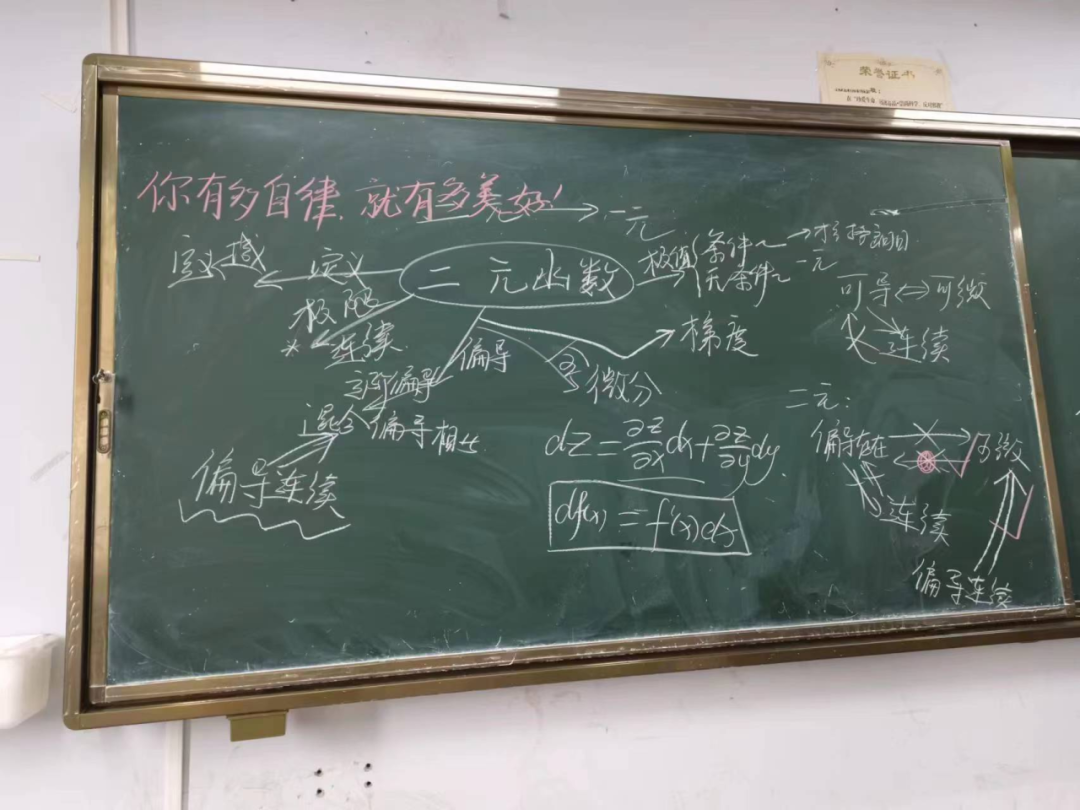 荣誉证书
你有多自律,就有多美好!
一元
定义域
定义
二元函数
极值
条件~
无条件~
一元
极限
* 连续
偏导
全
微分
梯度
可导⇔可微
连续
高阶偏导
混合偏导相等
偏导连续
二元:
偏导存在
可微
连续
偏导连续
dz = ∂z/∂x dx + ∂z/∂y dy
df(x) = f'(x)dx